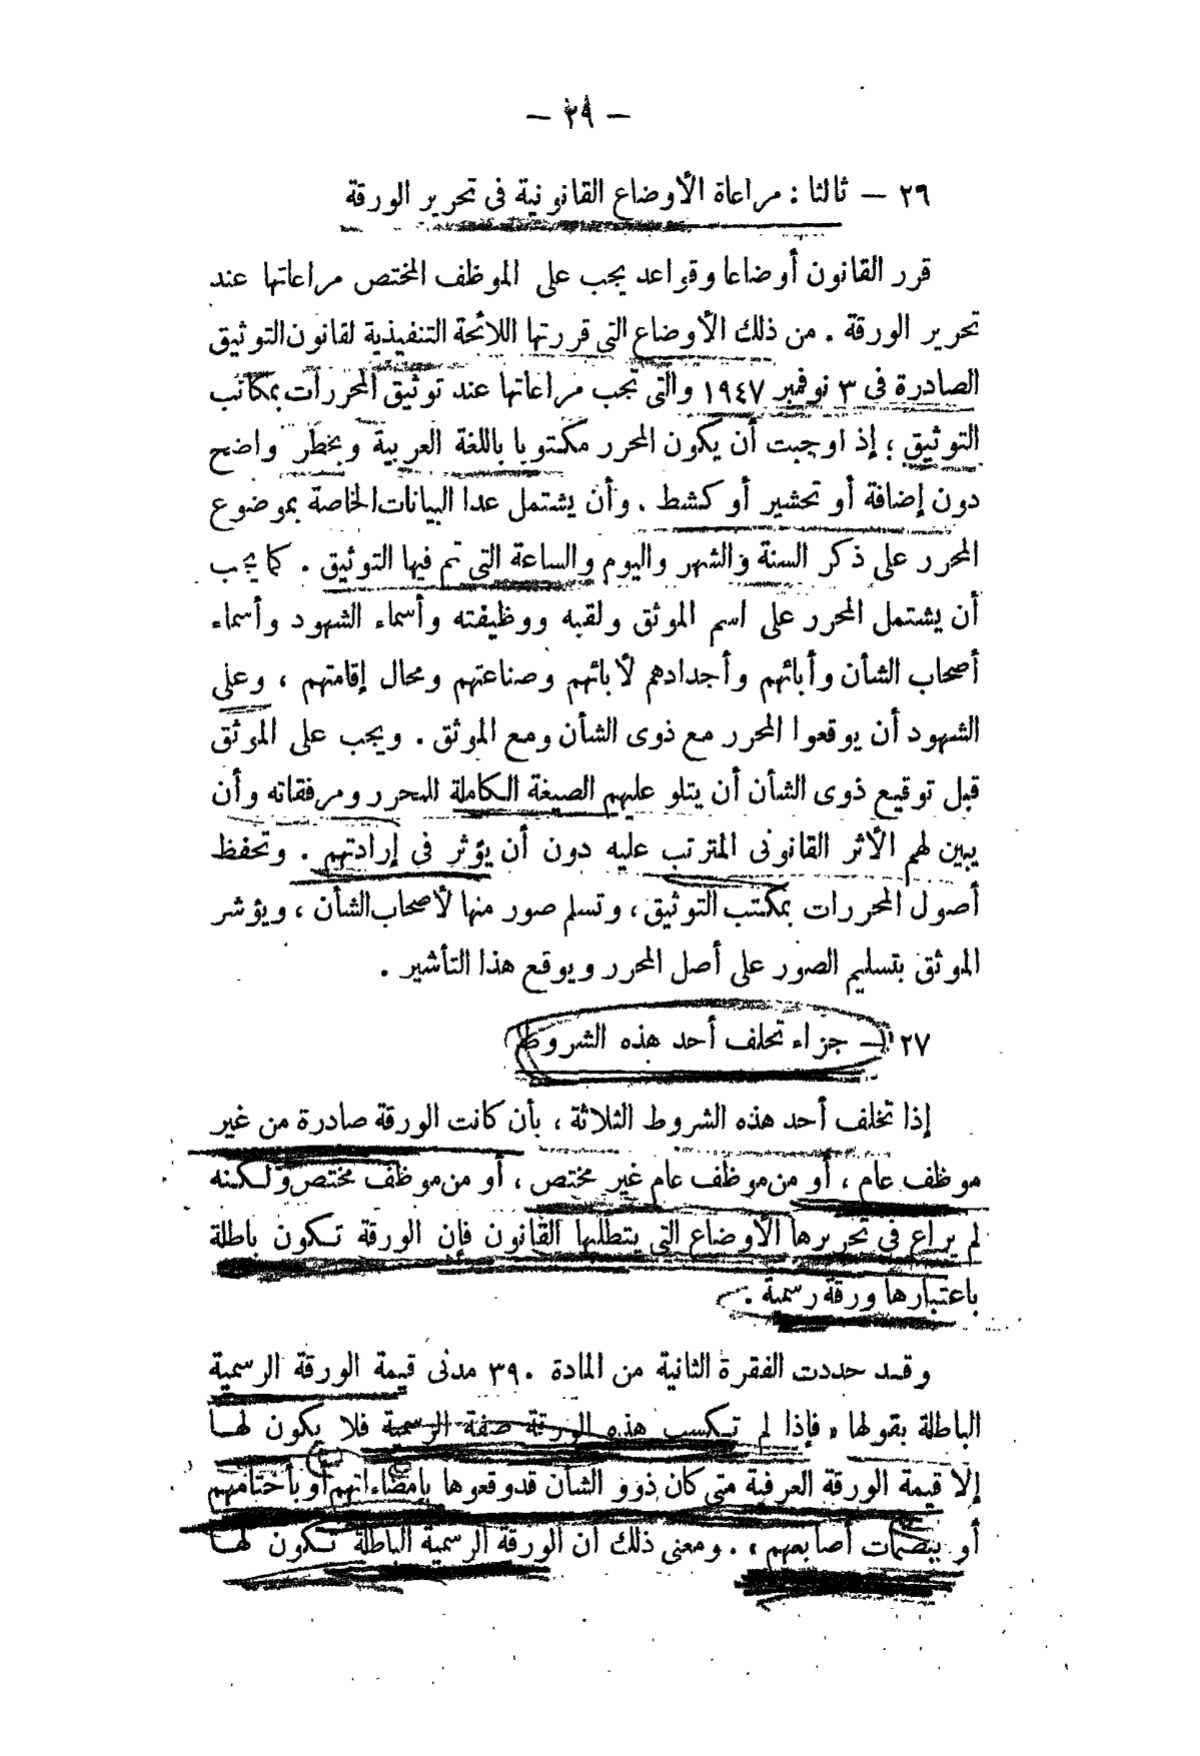 — ٣٩ —
٢٦ — ثالثا : مراعاة الأوضاع القانونية فى تحرير الورقة
قرر القانون أوضاعا وقواعد يجب على الموظف المختص مراعاتها عند
تحرير الورقة . من ذلك الأوضاع التى قررتها اللائحة التنفيذية لقانون التوثيق
الصادرة فى ٣ نوفمبر ١٩٤٧ والتى تجب مراعاتها عند توثيق المحررات بمكاتب
التوثيق ؛ إذ أوجبت أن يكون المحرر مكتوبا باللغة العربية وبخط واضح
دون إضافة أو تحشير أو كشط . وأن يشتمل عدا البيانات الخاصة بموضوع
المحرر على ذكر السنة والشهر واليوم والساعة التى تم فيها التوثيق . كما يجب
أن يشتمل المحرر على اسم الموثق ولقبه ووظيفته وأسماء الشهود وأسماء
أصحاب الشأن وأبائهم وأجدادهم لأبائهم وصناعتهم ومحال إقامتهم ، وعلى
الشهود أن يوقعوا المحرر مع ذوى الشأن ومع الموثق . ويجب على الموثق
قبل توقيع ذوى الشأن أن يتلو عليهم الصيغة الكاملة للمحرر ومرفقاته وأن
يبين لهم الأثر القانونى المترتب عليه دون أن يؤثر فى إرادتهم . وتحفظ
أصول المحررات بمكتب التوثيق ، وتسلم صور منها لأصحاب الشأن ، ويؤشر
الموثق بتسليم الصور على أصل المحرر ويوقع هذا التأشير .
٢٧ — جزاء تخلف أحد هذه الشروط
إذا تخلف أحد هذه الشروط الثلاثة ، بأن كانت الورقة صادرة من غير
موظف عام ، أو من موظف عام غير مختص ، أو من موظف مختص ولكنه
لم يراع فى تحريرها الأوضاع التى يتطلبها القانون فإن الورقة تكون باطلة
باعتبارها ورقة رسمية .
وقد حددت الفقرة الثانية من المادة ٣٩٠ مدنى قيمة الورقة الرسمية
الباطلة بقولها « فإذا لم تكسب هذه الورقة صفة الرسمية فلا يكون لها
إلا قيمة الورقة العرفية متى كان ذوو الشأن قد وقعوها بإمضاءاتهم أو بأختامهم
أو ببصمات أصابعهم » . ومعنى ذلك أن الورقة الرسمية الباطلة تكون لها